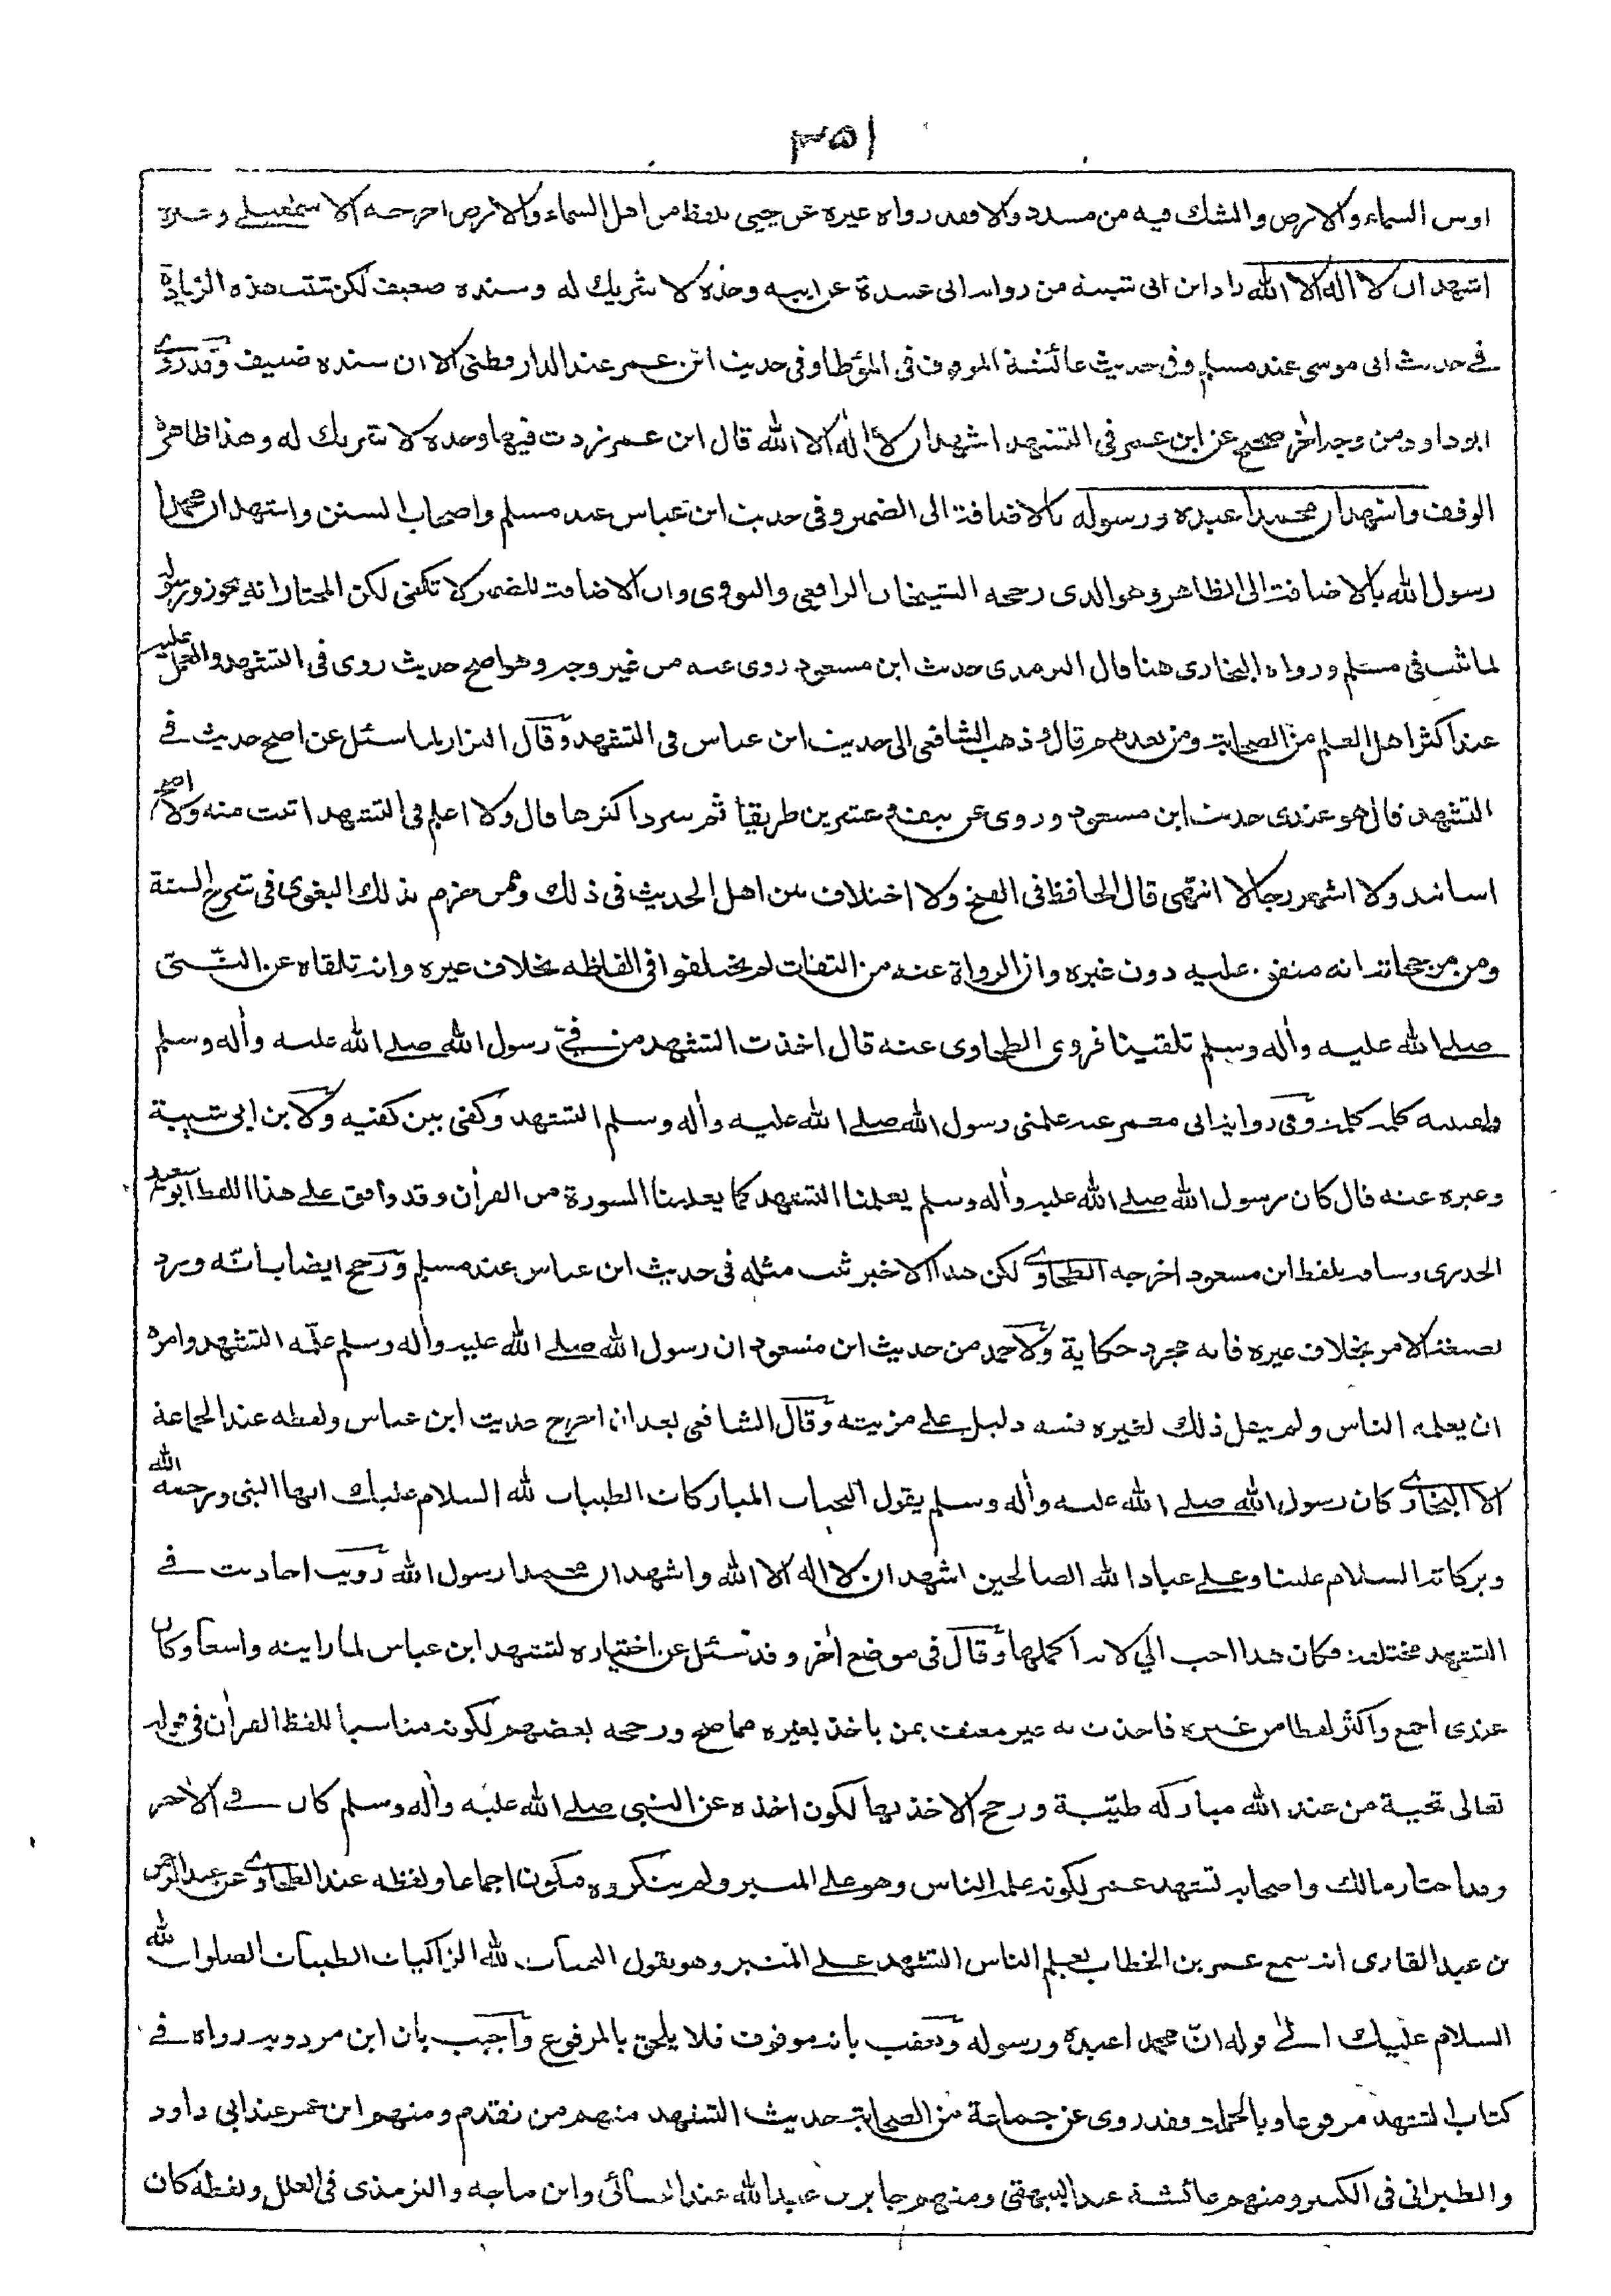 ٣٥١
اوبين السماء والارض والشك فيه من مسدد والا فقد رواه غيره عن يحيى بلفظ من اهل السماء والارض اخرجه الاسمعيلي وغيره
اشهد ان لا اله الا الله زاد ابن ابى شيبة من رواية ابى عبيدة عن ابيه وحده لا شريك له وسنده ضعيف لكن ثبتت هذه الزيادة
في حديث ابى موسى عند مسلم وفى حديث عائشة الموقوف فى المؤطا وفى حديث ابن عمر عند الدارقطنى الا ان سنده ضعيف وقد روى
ابو داود من وجه اٰخر صحيح عن ابن عمر فى التشهد اشهد ان لا اله الا الله قال ابن عمر زدت فيها وحده لا شريك له وهذا ظاهره
الوقف واشهد ان محمدا عبده ورسوله بالاضافة الى الضمير وفى حديث ابن عباس عند مسلم واصحاب السنن واشهد ان محمدا
رسول الله بالاضافة الى الظاهر وهو الذى رجحه الشيخان الرافعى والنووى وان الاضافة للضمير لا تكفى لكن المختار انه يجوز ورسوله
لما ثبت فى مسلم ورواه البخارى هنا قال الترمذى حديث ابن مسعود روى عنه من غير وجه وهو اصح حديث روى فى التشهد والعمل عليه
عند اكثر اهل العلم من الصحابة ومن بعدهم قال وذهب الشافعى الى حديث ابن عباس فى التشهد وقال البزار لما سئل عن اصح حديث في
التشهد قال هو عندى حديث ابن مسعود وروى عن نيف وعشرين طريقا ثم سرد اكثرها قال ولا اعلم فى التشهد اثبت منه ولا اصح
اسانيد ولا اشهر رجالا انتهى قال الحافظ فى الفتح ولا اختلاف بين اهل الحديث فى ذلك وممن جزم بذلك البغوى فى شرح السنة
ومن مرجحاته انه متفق عليه دون غيره وان الرواة عنه من الثقات لم يختلفوا فى الفاظه بخلاف غيره وانه تلقاه عن النبى
صلے الله عليه واٰله وسلم تلقينا فروى الطحاوى عنه قال اخذت التشهد من في رسول الله صلے الله عليه واٰله وسلم
ولقننيه كلمة كلمة وفى رواية ابى معمر عنه علمنى رسول الله صلے الله عليه واٰله وسلم التشهد وكفى بين كفيه ولابن ابى شيبة
وغيره عنه قال كان رسول الله صلے الله عليه واٰله وسلم يعلمنا التشهد كما يعلمنا السورة من القراٰن وقد وافق على هذا اللفظ ابو سعيد
الخدرى وساقه بلفظ ابن مسعود اخرجه الطحاوے لكن هذا الاخير ثبت مثله فى حديث ابن عباس عند مسلم ورجح ايضا بانه ورد
بصيغة الامر بخلاف غيره فانه مجرد حكاية ولاحمد من حديث ابن مسعود ان رسول الله صلے الله عليه واٰله وسلم علّمه التشهد وامره
ان يعلمه الناس ولم ينقل ذلك لغيره ففيه دليل على مزيته وقال الشافعى بعد ان اخرج حديث ابن عباس ولفظه عند الجماعة
الا البخارے كان رسول الله صلے الله عليه واٰله وسلم يقول التحيات المباركات الطيبات لله السلام عليك ايها النبى ورحمة الله
وبركاته السلام علينا وعلى عباد الله الصالحين اشهد ان لا اله الا الله واشهد ان محمدا رسول الله رويت احاديث في
التشهد مختلفة فكان هذا احب الي لانه اكملها وقال فى موضع اٰخر وقد سئل عن اختياره لتشهد ابن عباس لما رايته واسعا وكان
عندى اجمع واكثر لفظا من غيره فاخذت به غير معنف بمن ياخذ بغيره مما صح ورجحه بعضهم لكونه مناسبا للفظ القراٰن فى قوله
تعالى تحية من عند الله مباركه طيّبة ورجح الاخذ بها لكون اخذه عن النبى صلے الله عليه واٰله وسلم كان في الاخر
وقد اختار مالك واصحابه تشهد عمر لكونه علمه الناس وهو على المنبر ولم ينكروه فيكون اجماعا ولفظه عند الطحاوے عن عبد الرحمن
بن عبد القارى انه سمع عمر بن الخطاب يعلم الناس التشهد على المنبر وهو يقول التحيات لله الزاكيات الطيبات الصلوات لله
السلام عليك الىٰ قوله انّ محمدا عبده ورسوله وتعقب بانه موقوف فلا يلحق بالمرفوع واجيب بان ابن مردويه رواه في
كتاب التشهد مرفوعا وبالجملة وقد روى عن جماعة من الصحابة حديث التشهد منهم من تقدم ومنهم ابن عمر عند ابى داود
والطبرانى فى الكبير ومنهم عائشة عند البيهقى ومنهم جابر بن عبد الله عند النسائى وابن ماجه والترمذى فى العلل ولفظه كان